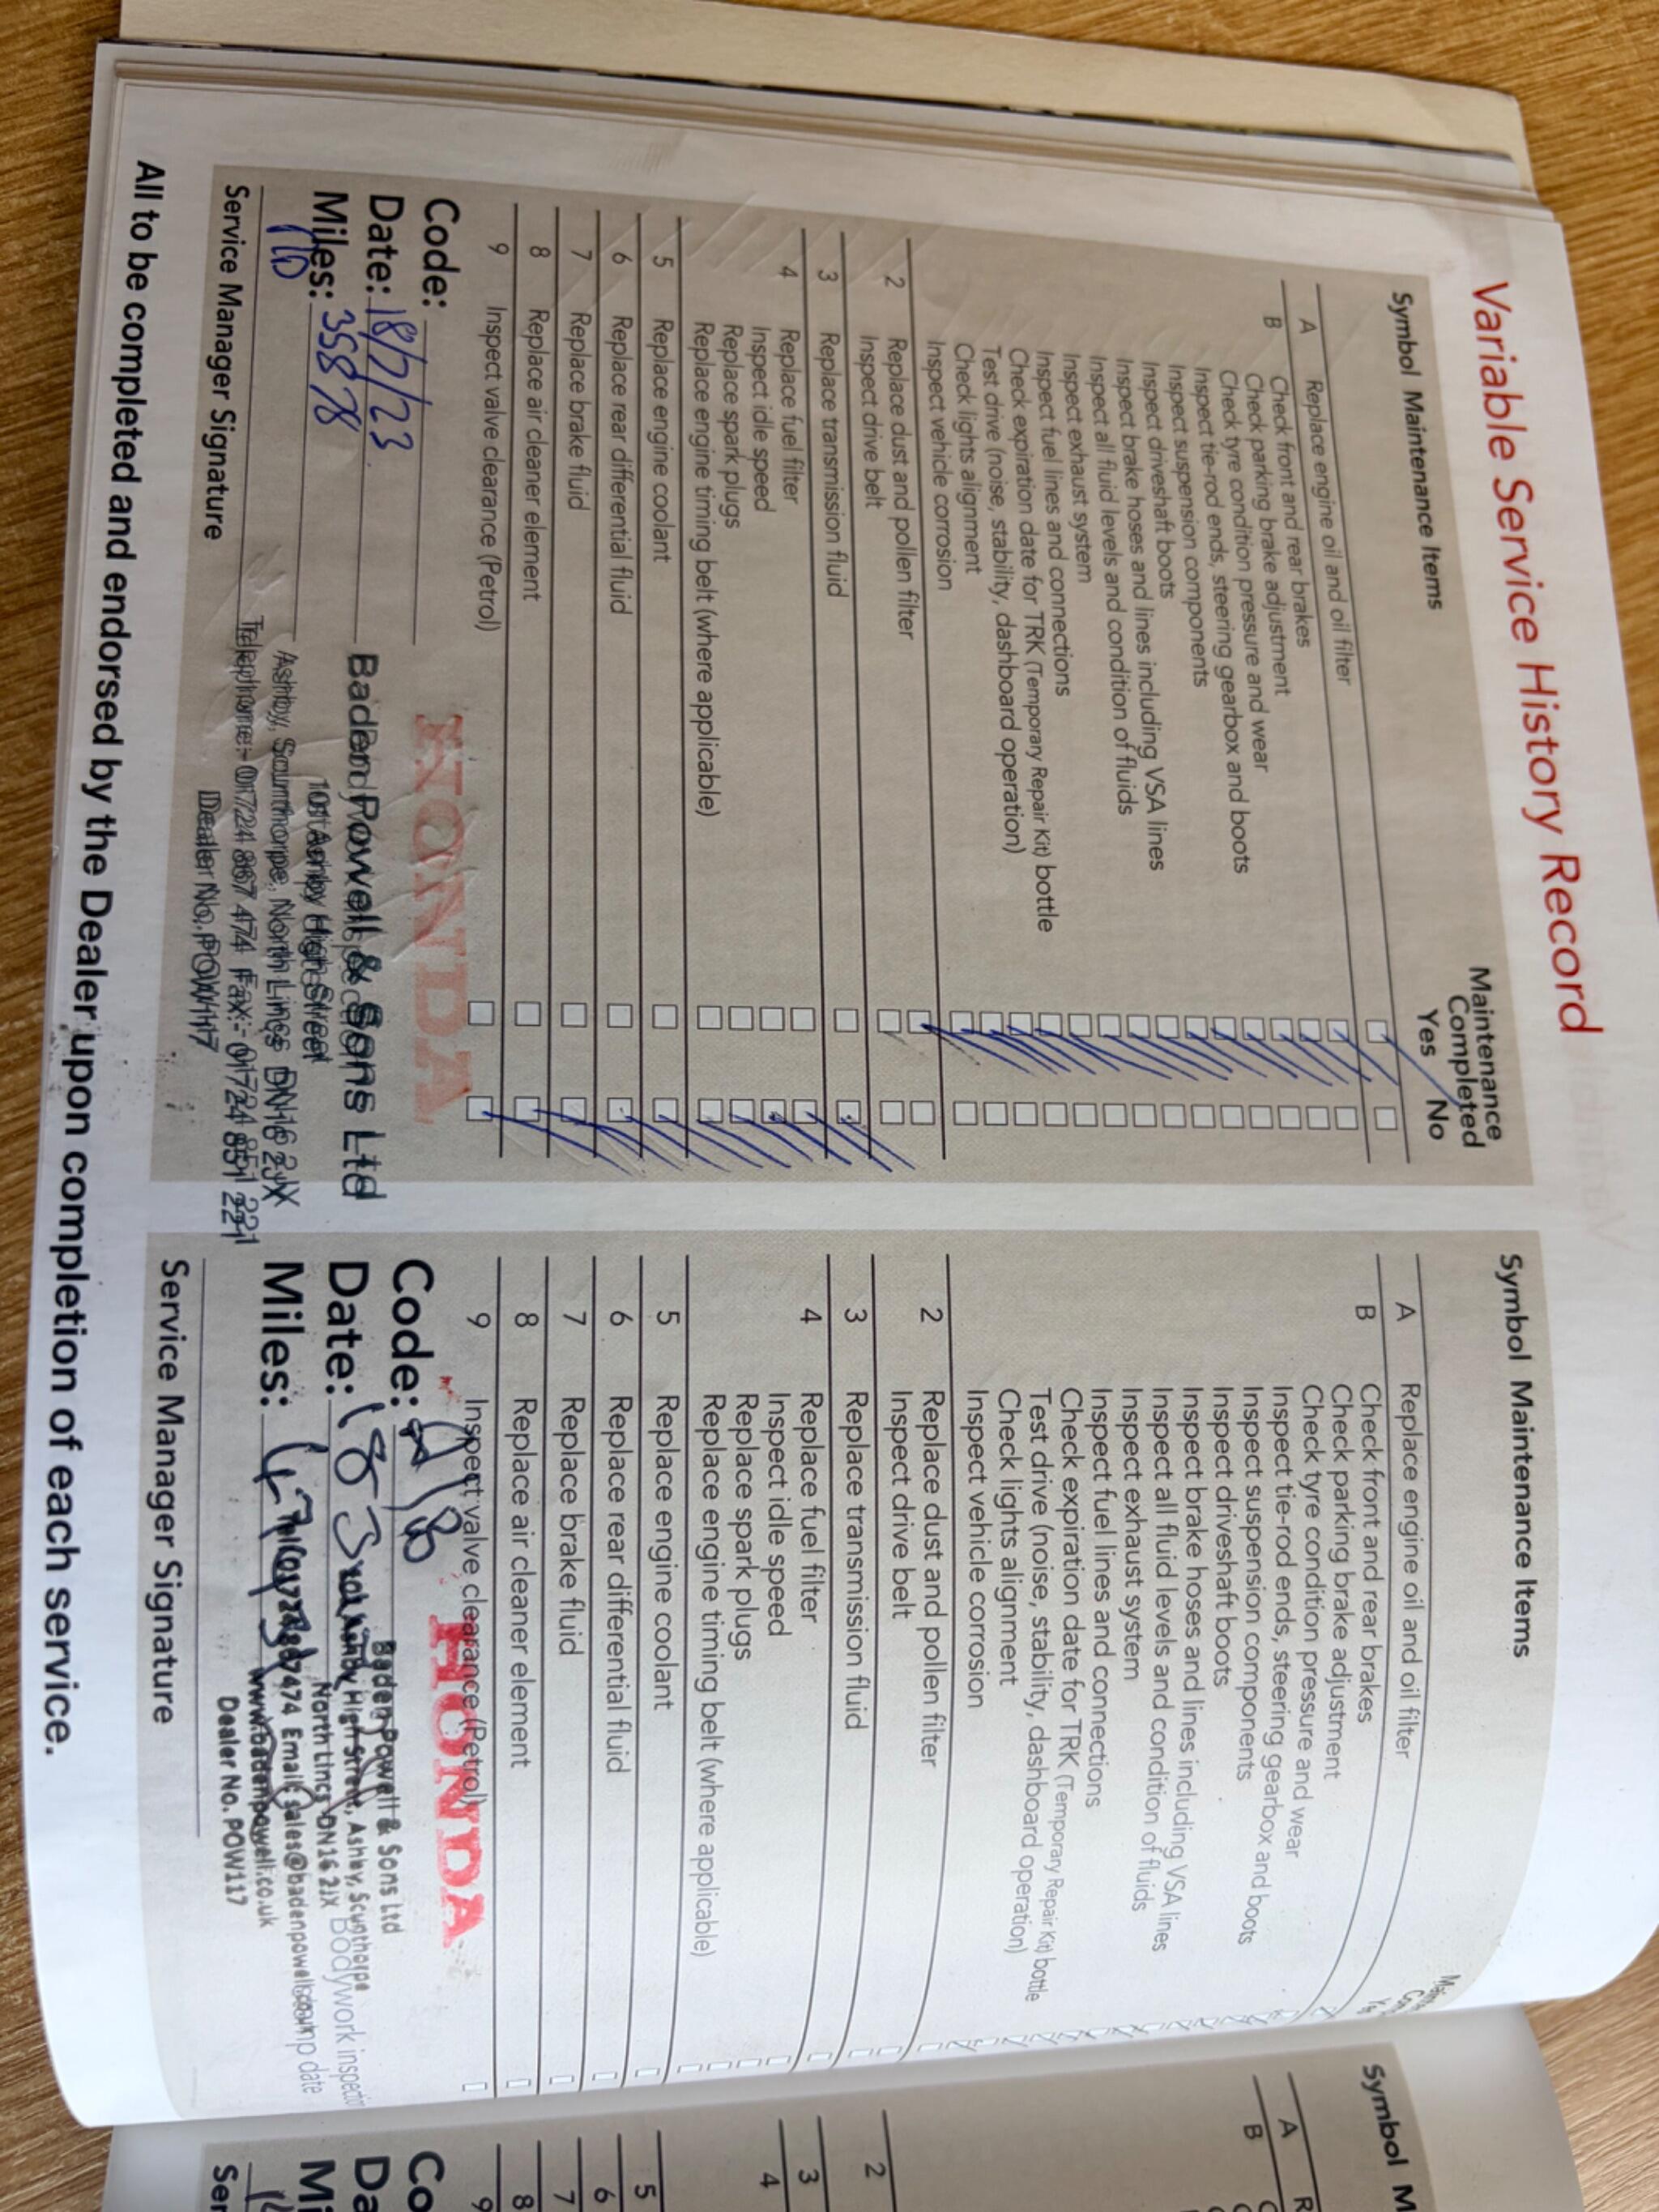 Variable Service History Record
Symbol Maintenance Items
Maintenance
Completed
Yes No
A Replace engine oil and oil filter
B Check front and rear brakes
Check parking brake adjustment
Check tyre condition pressure and wear
Inspect tie-rod ends, steering gearbox and boots
Inspect suspension components
Inspect driveshaft boots
Inspect brake hoses and lines including VSA lines
Inspect all fluid levels and condition of fluids
Inspect exhaust system
Inspect fuel lines and connections
Check expiration date for TRK (Temporary Repair Kit) bottle
Test drive (noise, stability, dashboard operation)
Check lights alignment
Inspect vehicle corrosion
2 Replace dust and pollen filter
Inspect drive belt
3 Replace transmission fluid
4 Replace fuel filter
Inspect idle speed
Replace spark plugs
Replace engine timing belt (where applicable)
5 Replace engine coolant
6 Replace rear differential fluid
7 Replace brake fluid
8 Replace air cleaner element
9 Inspect valve clearance (Petrol)
HONDA
Code:
Date: 18/7/23
Miles: 35878
Service Manager Signature
Baden Powell & Sons Ltd
101 Ashby High Street
Ashby, Scunthorpe, North Lincs DN16 2JX
Telephone:- 01724 867 474 Fax:- 01724 851 221
Dealer No. POW117
Symbol Maintenance Items
A Replace engine oil and oil filter
B Check front and rear brakes
Check parking brake adjustment
Check tyre condition pressure and wear
Inspect tie-rod ends, steering gearbox and boots
Inspect suspension components
Inspect driveshaft boots
Inspect brake hoses and lines including VSA lines
Inspect all fluid levels and condition of fluids
Inspect exhaust system
Inspect fuel lines and connections
Check expiration date for TRK (Temporary Repair Kit) bottle
Test drive (noise, stability, dashboard operation)
Check lights alignment
Inspect vehicle corrosion
2 Replace dust and pollen filter
Inspect drive belt
3 Replace transmission fluid
4 Replace fuel filter
Inspect idle speed
Replace spark plugs
Replace engine timing belt (where applicable)
5 Replace engine coolant
6 Replace rear differential fluid
7 Replace brake fluid
8 Replace air cleaner element
9 Inspect valve clearance (Petrol)
HONDA
Code:
Date: 18 3
Miles:
Service Manager Signature
Baden Powell & Sons Ltd
Ashby High Street, Ashby, Scunthorpe
North Lincs DN16 2JX
Email: sales@badenpowell
www.badenpowell.co.uk
Dealer No. POW117
Bodywork inspection
stamp date
All to be completed and endorsed by the Dealer upon completion of each service.
Symbol M
A R
B C
2
3
4
5
6
7
8
9
Co
Da
Mi
Ser